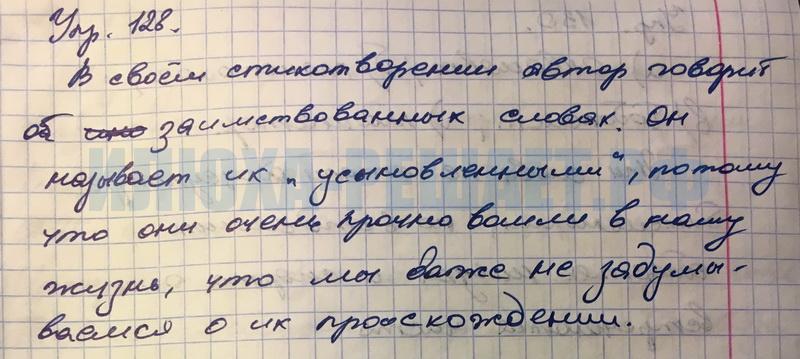 Упр. 128.
В своём стихотворении автор говорит
об заимствованных словах. Он
называет их „усыновленными“, потому
ИЛЮХА-РЕШАЕТ.РФ
что они очень прочно вошли в нашу
жизнь, что мы даже не задумы-
ваемся о их происхождении.